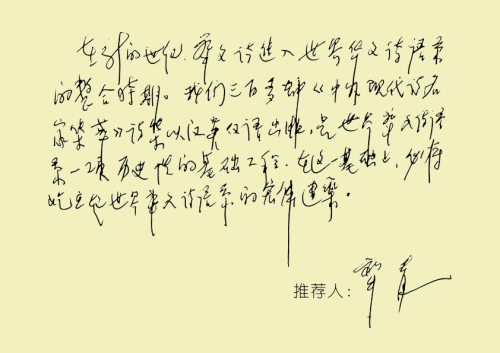 在新的世纪,华文诗进入世界华文诗语系
的整合时期。我们三百多部《中外现代诗名
家集萃》诗集以汉英双语出版,是世界华文诗语
系一项历史性的基础工程,在这一基础上,必将
屹立起世界华文诗语系的宏伟建筑。
推荐人: 犁青